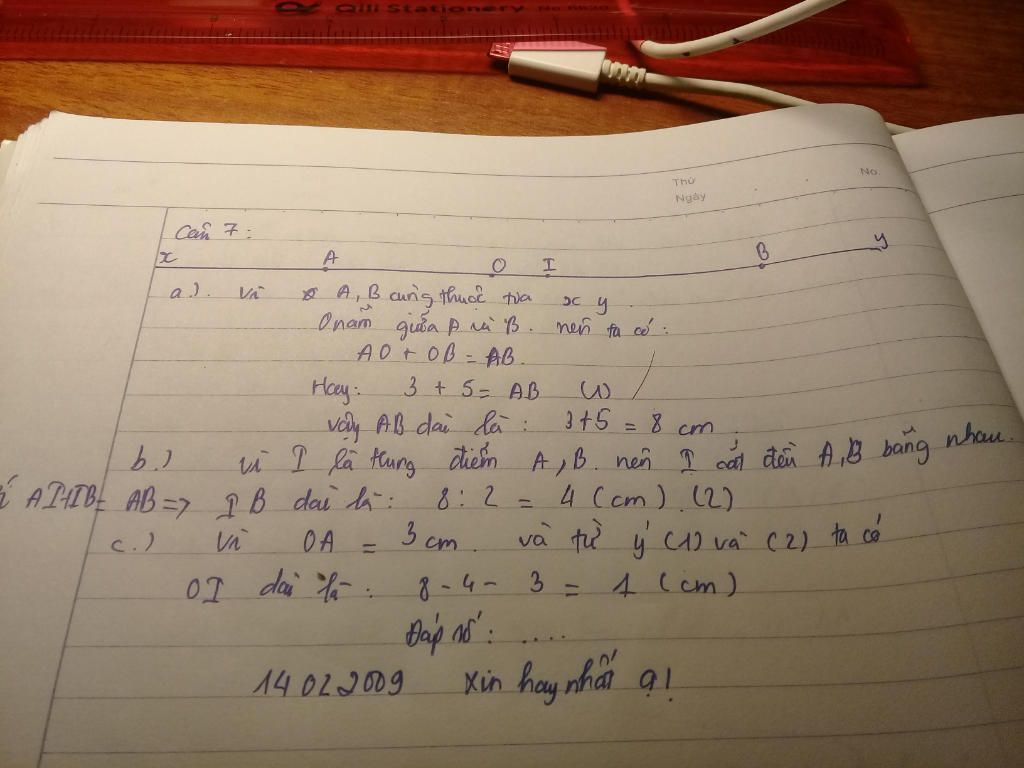 Qili Stationery No 8820
Thứ
Ngày
No.
Câu 7:
x A O I B y
a). Vì A, B cùng thuộc tia x y.
O nằm giữa A và B. nên ta có:
AO + OB = AB.
Hay: 3 + 5 = AB (1)
vậy AB dài là: 3+5 = 8 cm.
b.) Vì I là trung điểm A, B. nên I đến A, B bằng nhau.
AI+IB= AB => IB dài là: 8 : 2 = 4 (cm). (2)
c.) Vì OA = 3 cm. và từ ý (1) và (2) ta có
OI dài là: 8 - 4 - 3 = 1 (cm)
Đáp số: ....
14022009 Xin hay nhất ạ!